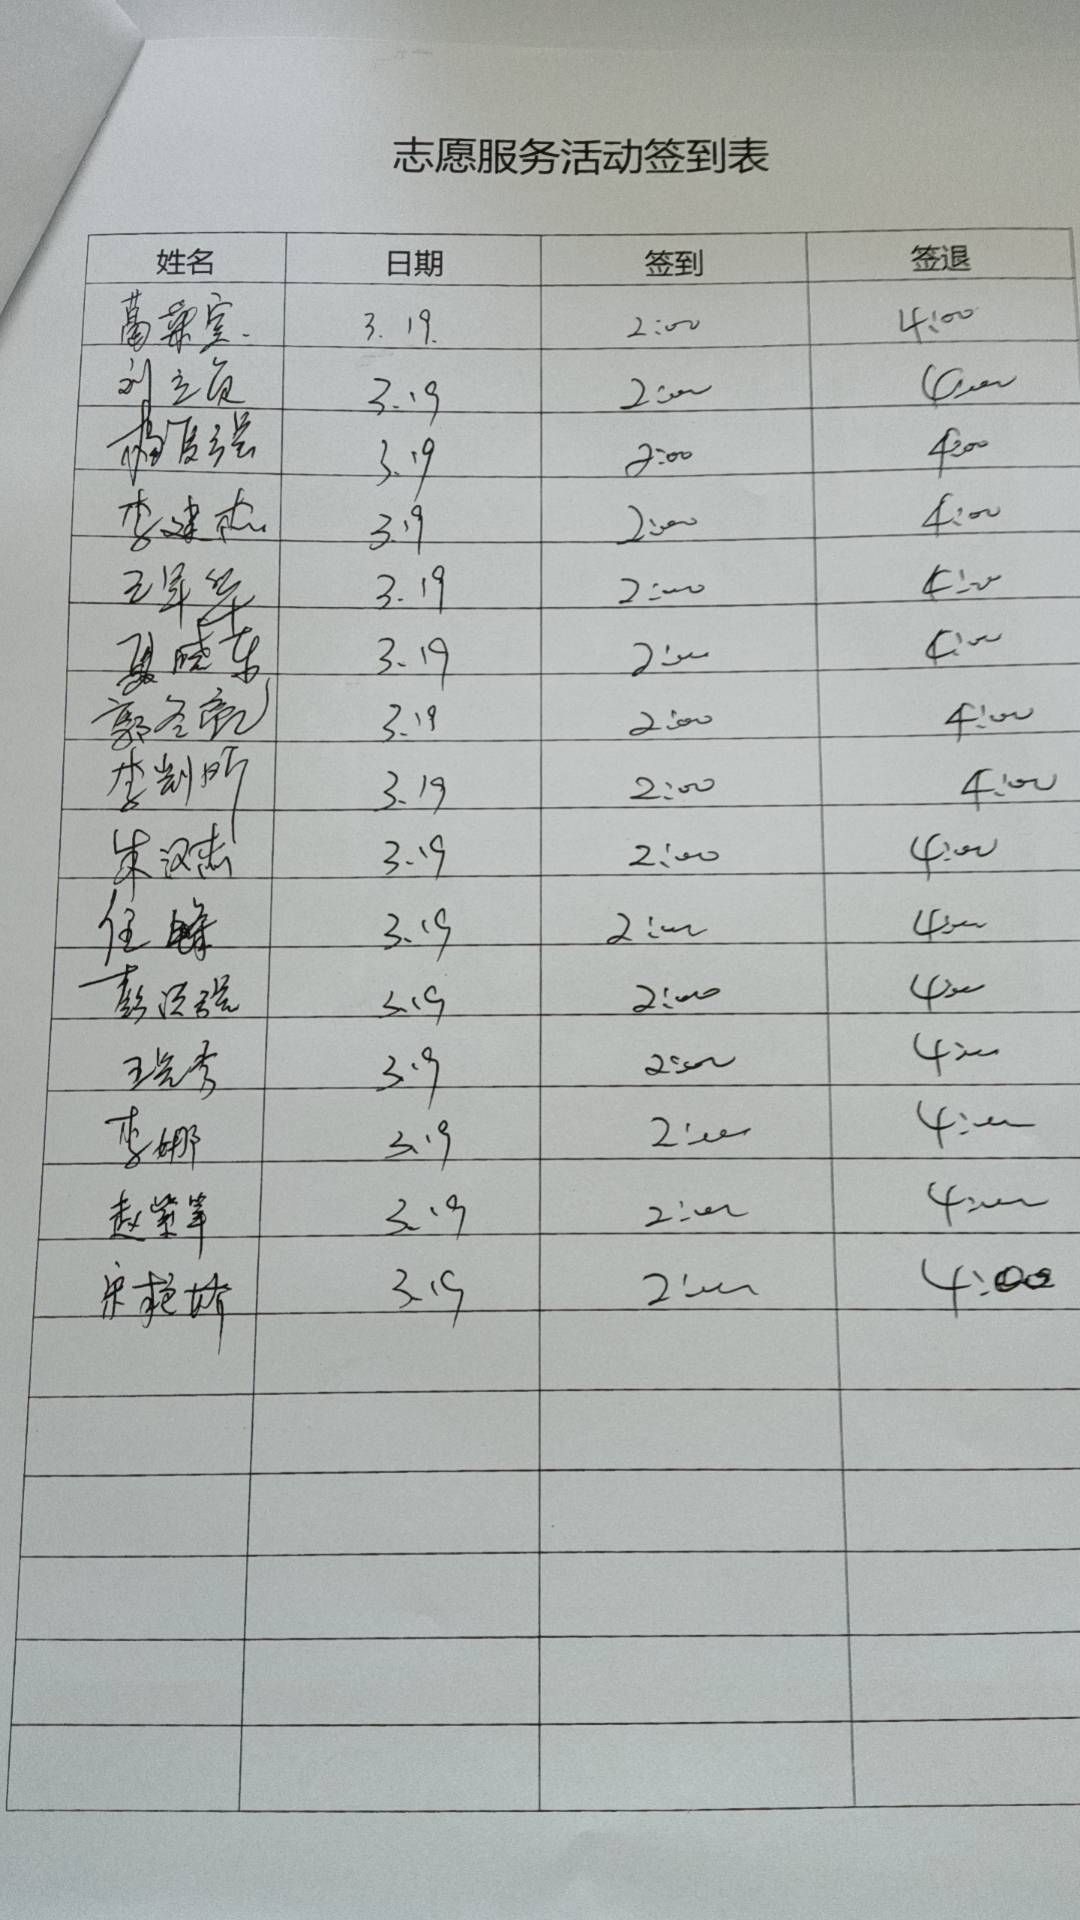 志愿服务活动签到表
姓名 日期 签到 签退
葛荣宝. 3.19. 2:00 4:00
刘立 3.19 2:00 4:00
杨 强 3.19 2:00 4:00
李建杰 3.19 2:00 4:00
王军华 3.19 2:00 4:00
夏晓东 3.19 2:00 4:00
郭冬 3.19 2:00 4:00
李 3.19 2:00 4:00
朱汉杰 3.19 2:00 4:00
任峰 3.19 2:00 4:00
彭洪强 3.19 2:00 4:00
王 秀 3.19 2:00 4:00
李娜 3.19 2:00 4:00
赵 3.19 2:00 4:00
宋艳娇 3.19 2:00 4:00